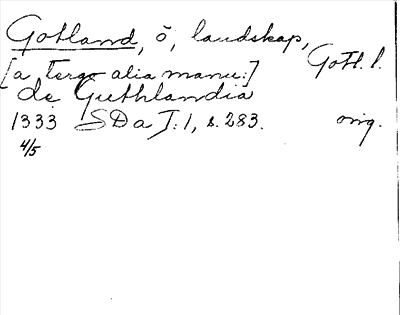 Gotland, ö, landskap,
Gotl. l.
[a tergo alia manu:]
de Guthlandia
1333 SDa I:1, s. 283. orig.
4/5